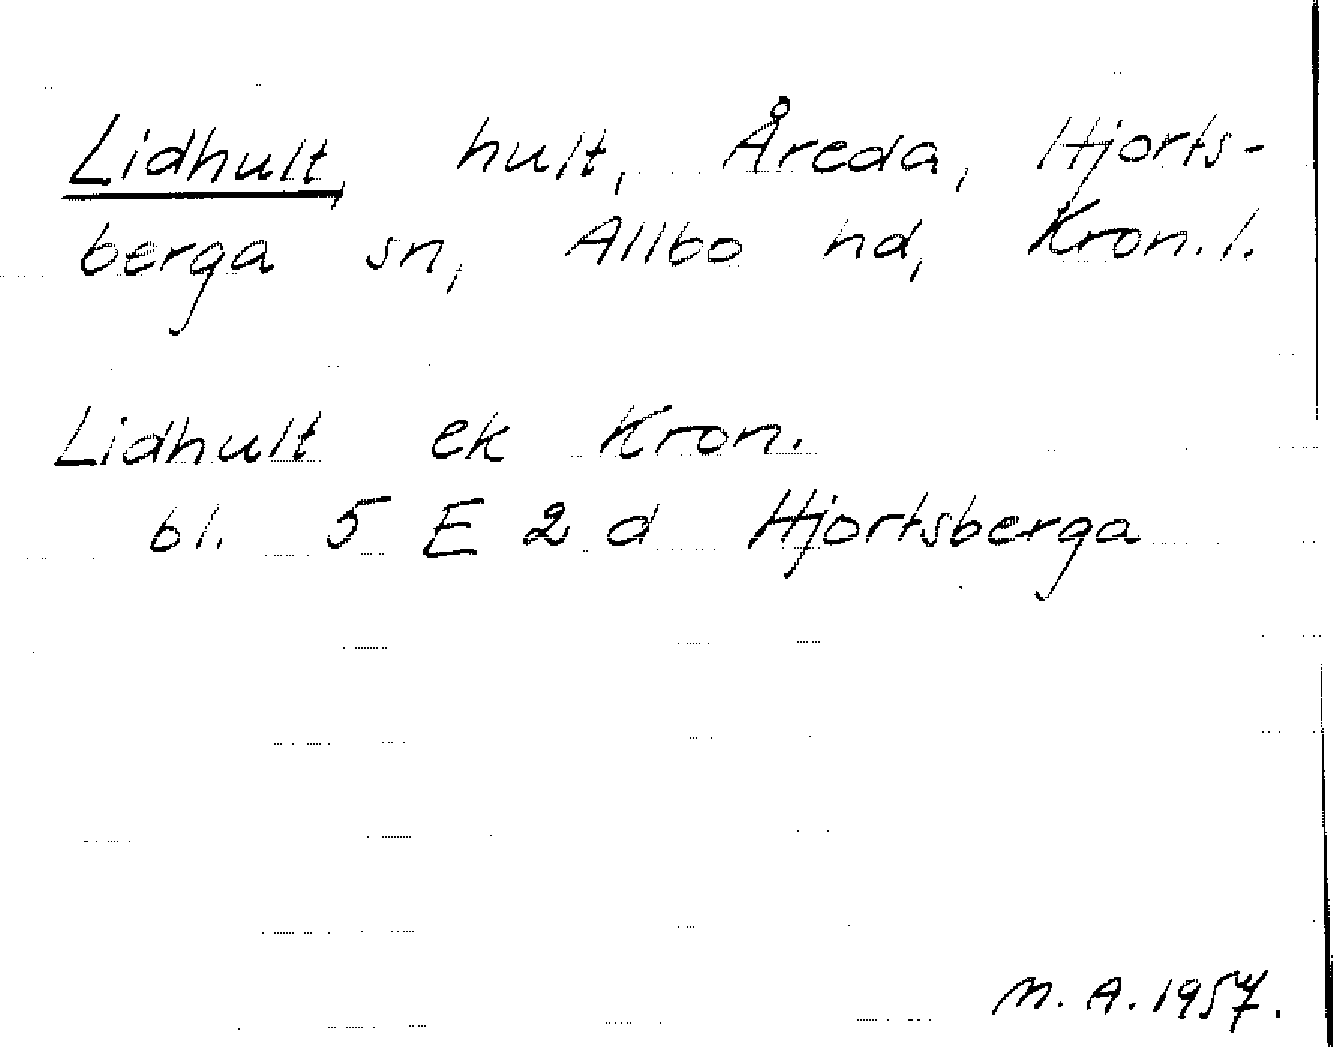 Lidhult, hult, Åreda, Hjorts-
berga sn, Allbo hd, Kron. l.
Lidhult ek Kron.
bl. 5 E 2 d Hjortsberga
M. A. 1957.